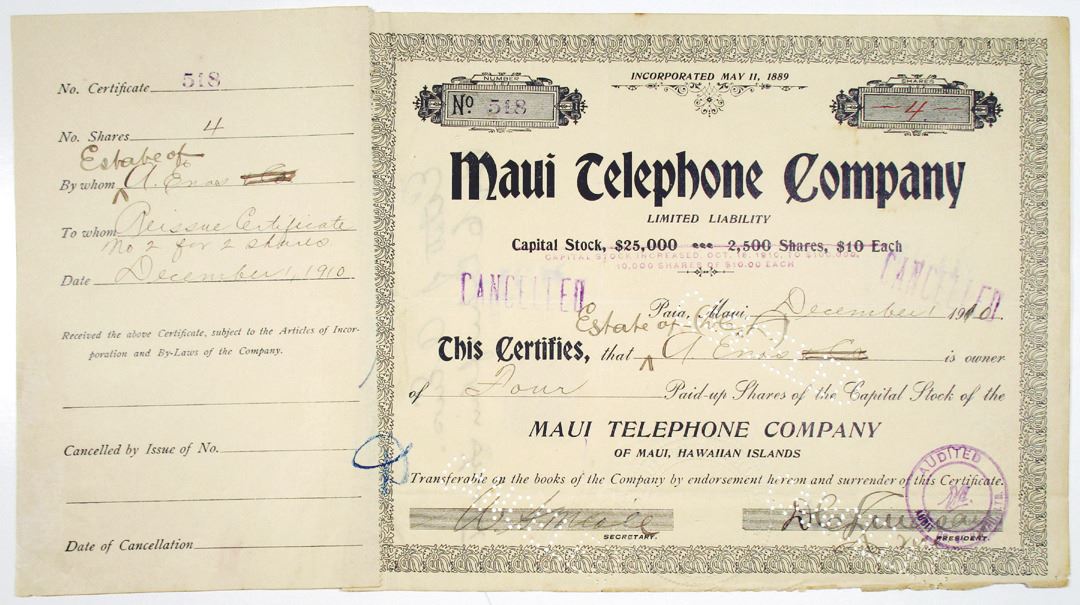 No. Certificate 518
No. Shares 4
Estate of
By whom A. Enos & Co
To whom Reissue Certificate
No 2 for 2 shares
Date December 1, 1910
Received the above Certificate, subject to the Articles of Incor-
poration and By-Laws of the Company.
Cancelled by Issue of No.
Date of Cancellation
NUMBER
No 518
INCORPORATED MAY 11, 1889
SHARES
4
Maui Telephone Company
LIMITED LIABILITY
Capital Stock, $25,000 2,500 Shares, $10 Each
CAPITAL STOCK INCREASED, OCT. 18, 1910, TO $100,000,
10,000 SHARES OF $10.00 EACH
CANCELLED
CANCELLED
Paia, Maui, December 1 1910.
Estate of
This Certifies, that A. Enos & Co is owner
of Four Paid-up Shares of the Capital Stock of the
MAUI TELEPHONE COMPANY
OF MAUI, HAWAIIAN ISLANDS
Transferable on the books of the Company by endorsement hereon and surrender of this Certificate.
AUDITED
SECRETARY.
PRESIDENT.